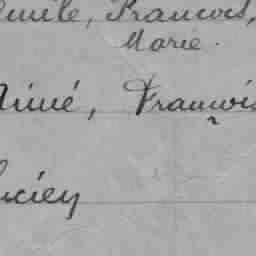 Emile, François,
Marie.
Aimé, François
Lucien